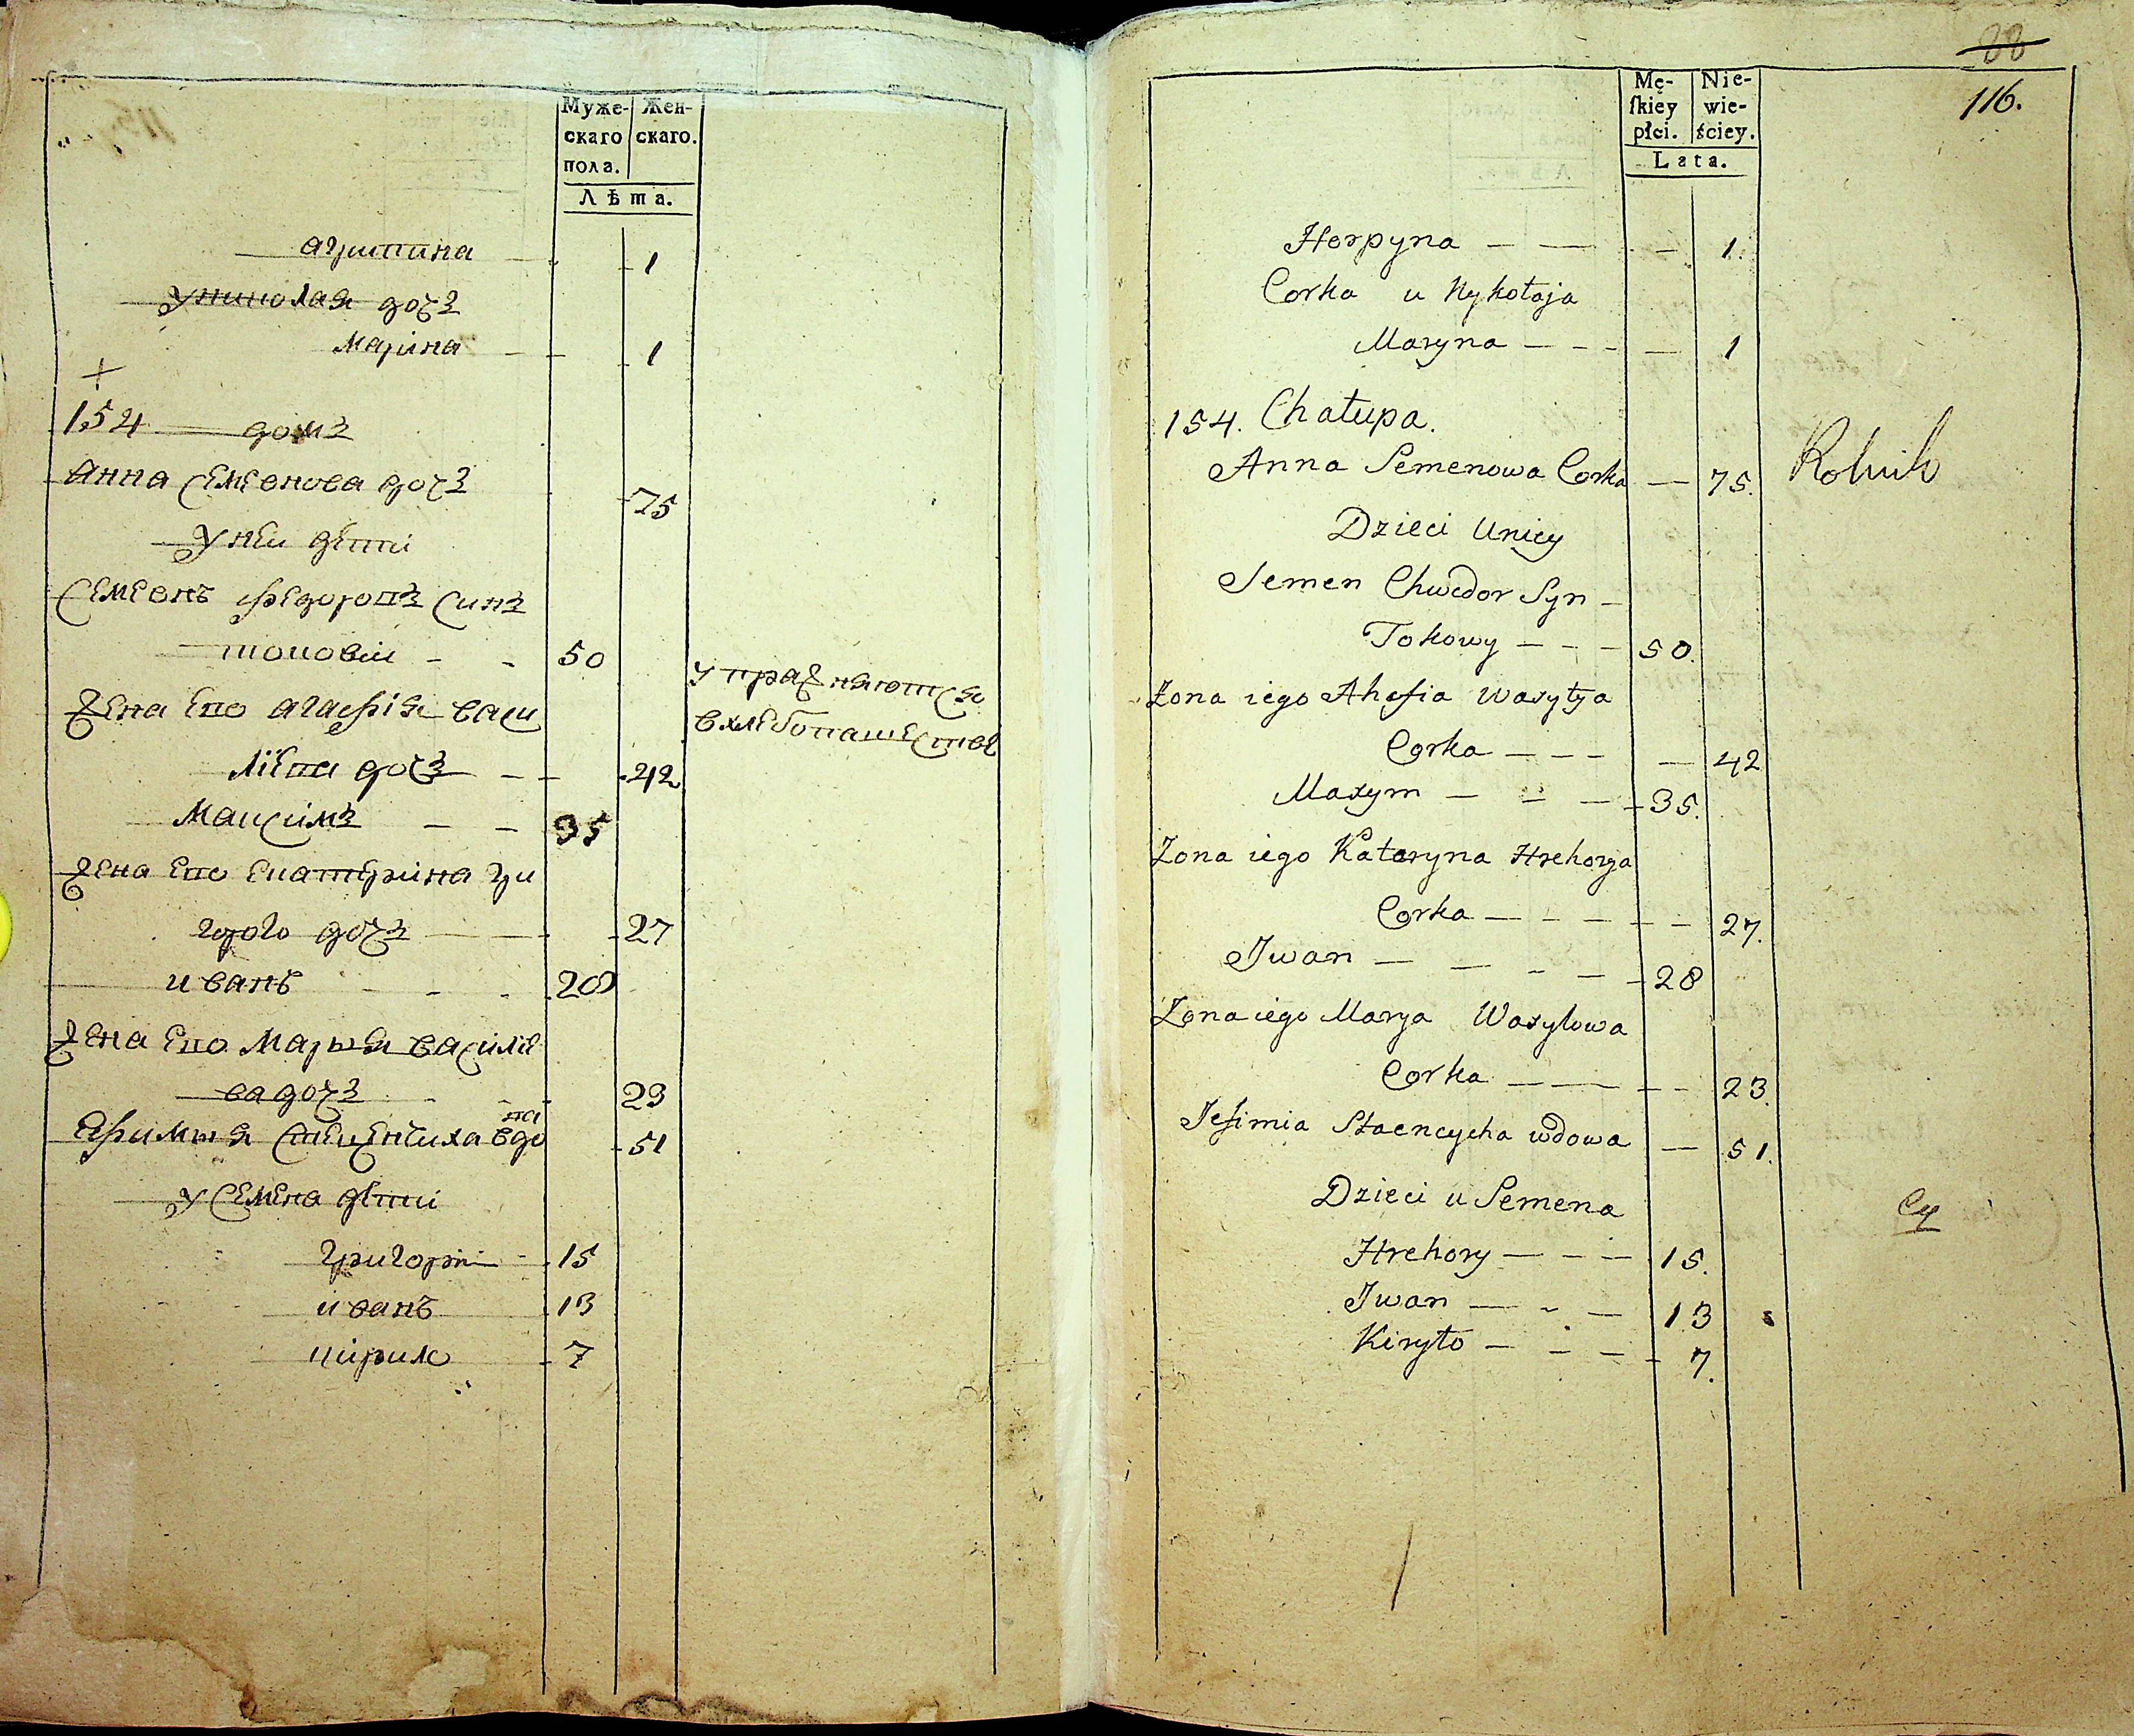 Муже-
скаго
пола.
Жен-
скаго.
Лѣта.
агрипина 1
у николая дочъ
марина 1
154 домъ
анна семенова дочъ 75
у неи дети
семенъ федоровъ синъ
токовіи 50
упражняются
в хлебопашестве
жена его агафія васи
лієва дочъ 42
максимъ 35
жена его екатерина гри
горого дочъ 27
иванъ 28
жена его марья василіе
ва дочъ 23
ефимия вдова 51
у семена дети
григори 15
иванъ 13
кирило 7
88
116.
Mę-
ſkiey
płci.
Nie-
wie-
ściey.
Lata.
Horpyna 1.
Corka u Nykołaja
Maryna 1
154. Chałupa.
Anna Semenowa Corka 75. Rolnik
Dzieci Unicy
Semen Chwedor Syn
Tokowy 50.
Zona iego Ahafia Wasyłya
Corka 42
Maxym 35.
Zona iego Kataryna Hrehorya
Corka 27.
Jwan 28
Zona iego Marya Wasylowa
Corka 23.
Jefimia Stacencycha wdowa 51.
Dzieci u Semena
Hrehory 15.
Jwan 13
Kiryło 7.